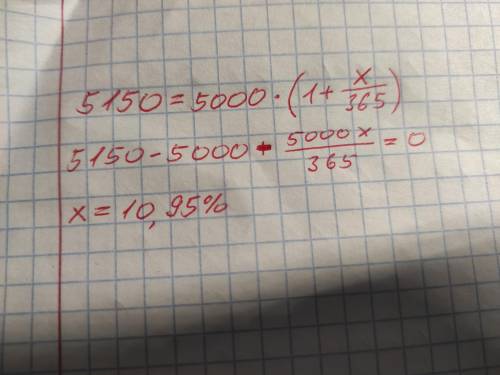 5150 = 5000 · (1 + x/365)
5150 - 5000 - 5000x/365 = 0
x = 10,95%